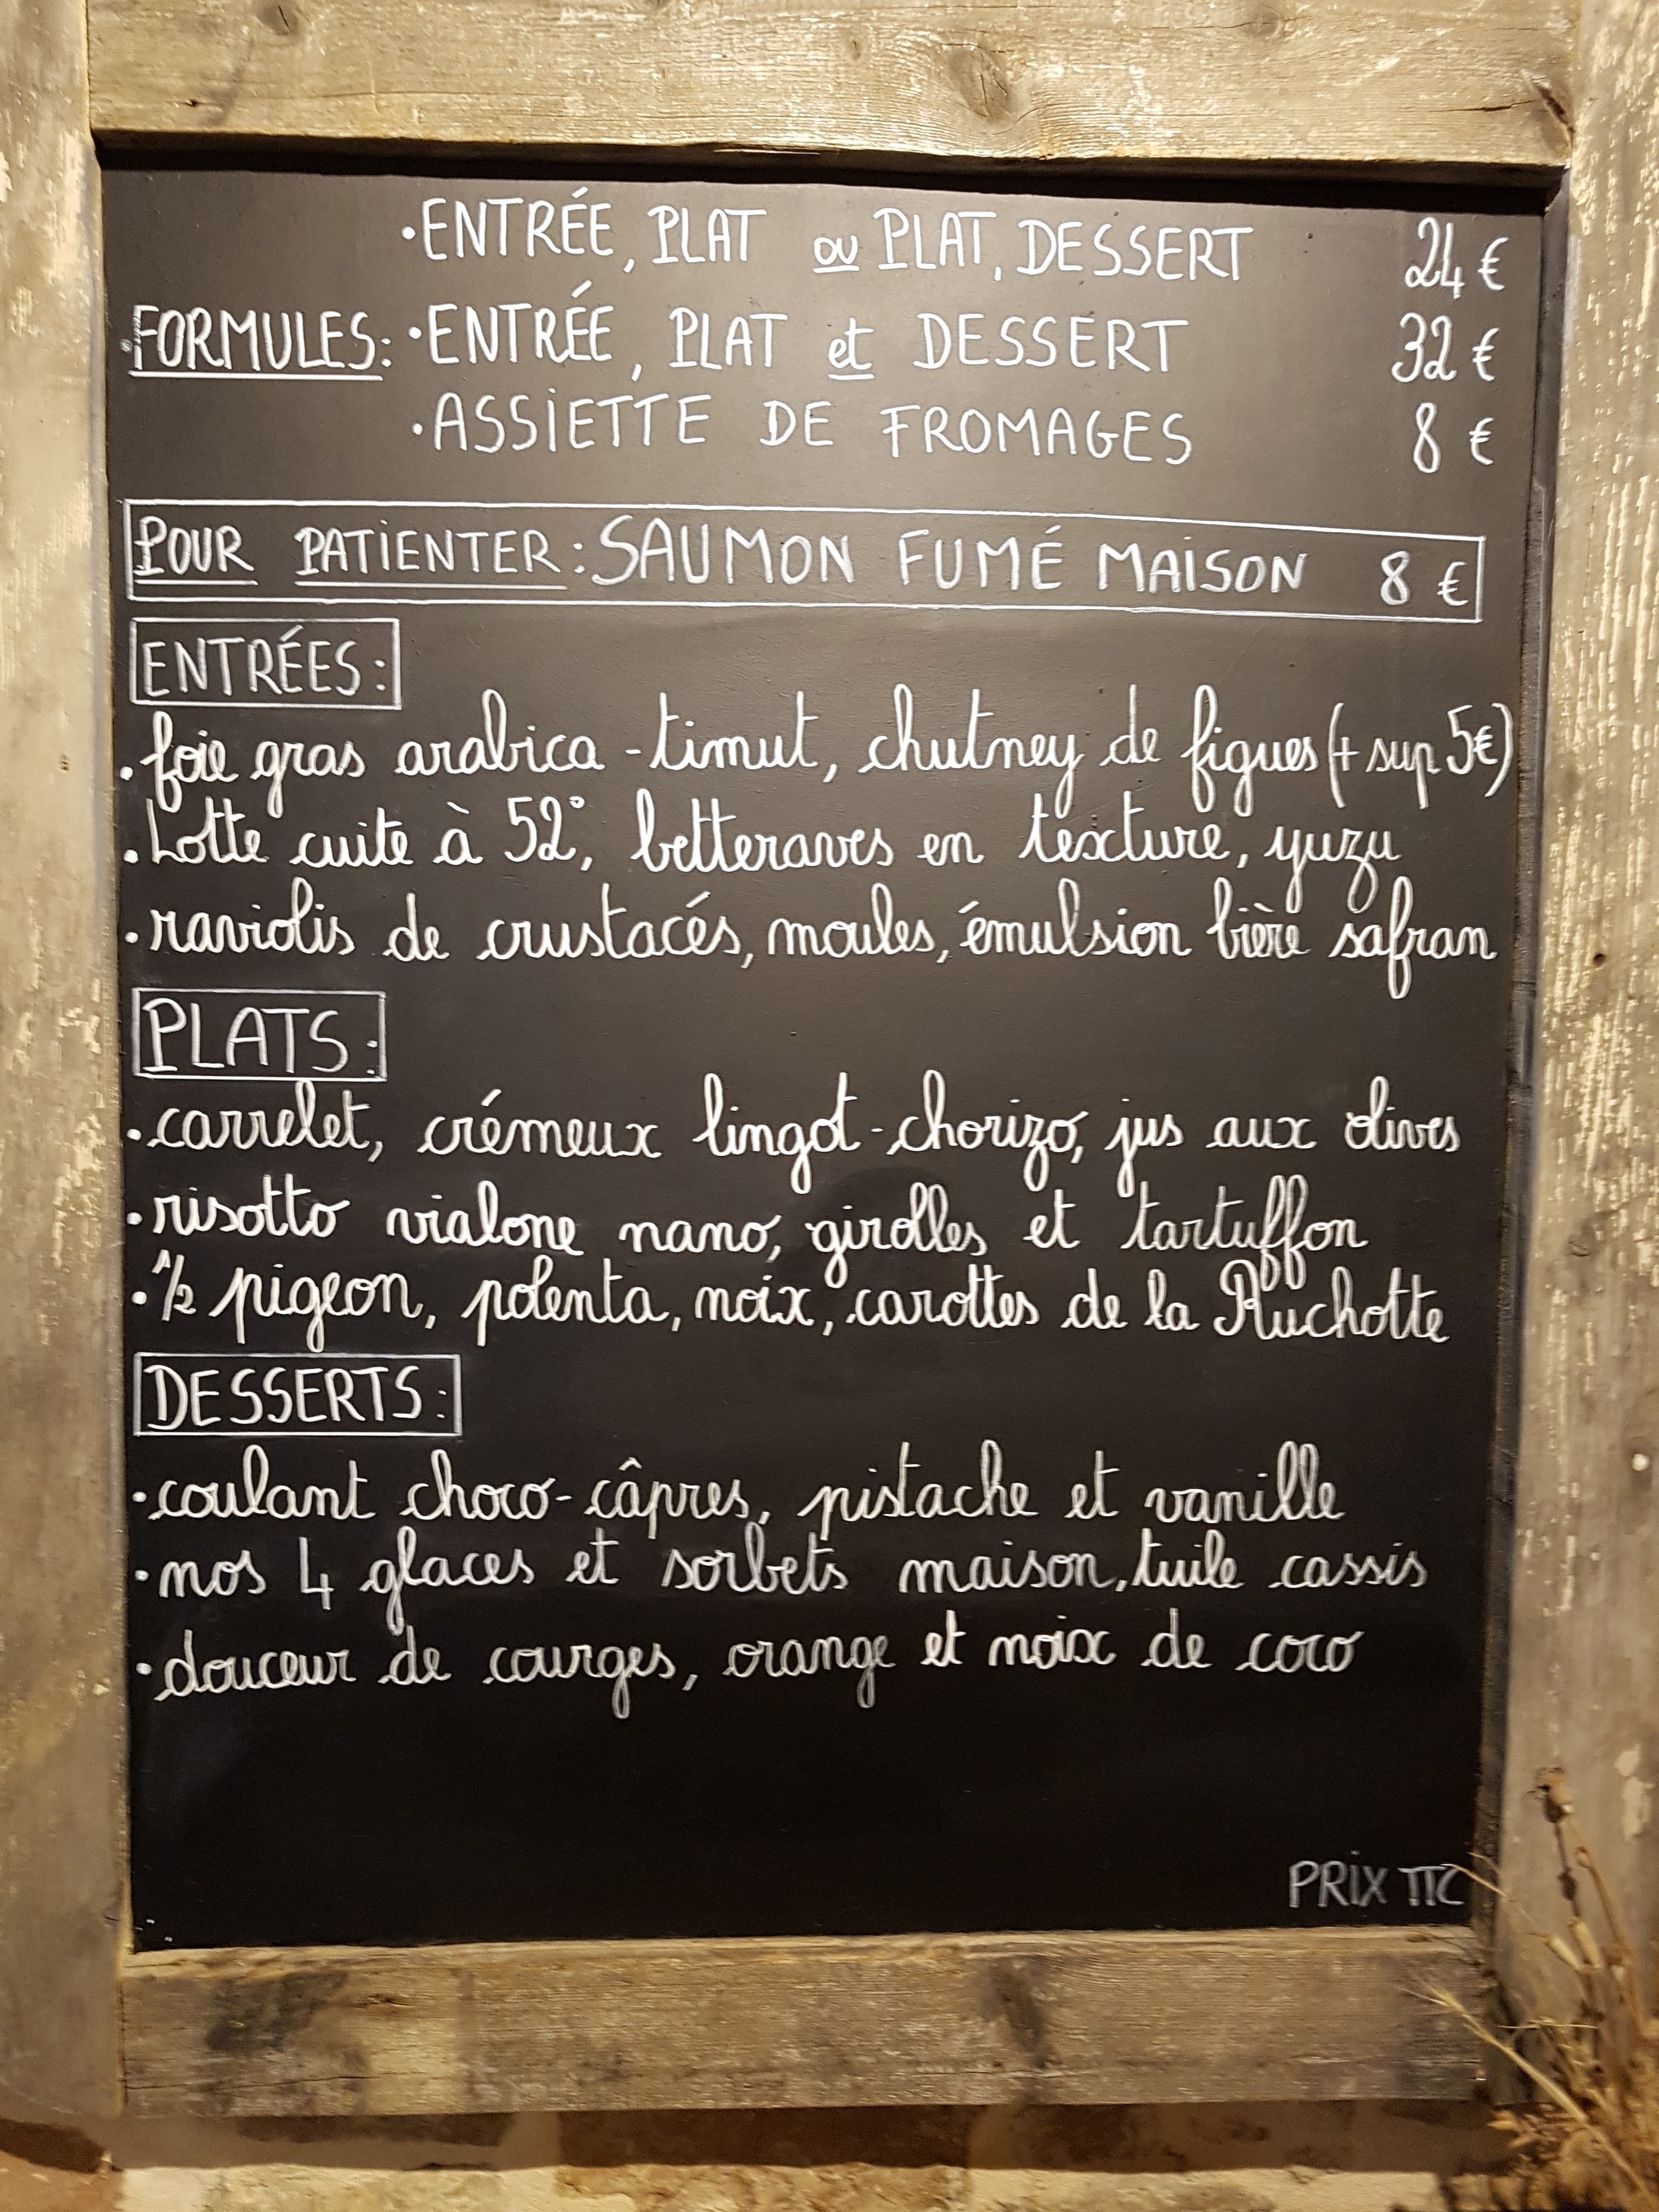 •ENTRÉE, PLAT ou PLAT, DESSERT 24 €
•FORMULES: •ENTRÉE, PLAT et DESSERT 32 €
•ASSIETTE DE FROMAGES 8 €
POUR PATIENTER: SAUMON FUMÉ MAISON 8 €
ENTRÉES:
•foie gras arabica-timut, chutney de figues (+ sup 5€)
•Lotte cuite à 52°, betteraves en texture, yuzu
•raviolis de crustacés, moules, émulsion bière safran
PLATS:
•carrelet, crémeux lingot-chorizo, jus aux olives
•risotto vialone nano, girolles et tartuffon
•1/2 pigeon, polenta, noix, carottes de la Ruchotte
DESSERTS:
•coulant choco-câpres, pistache et vanille
•nos 4 glaces et sorbets maison, tuile cassis
•douceur de courges, orange et noix de coco
PRIX TTC